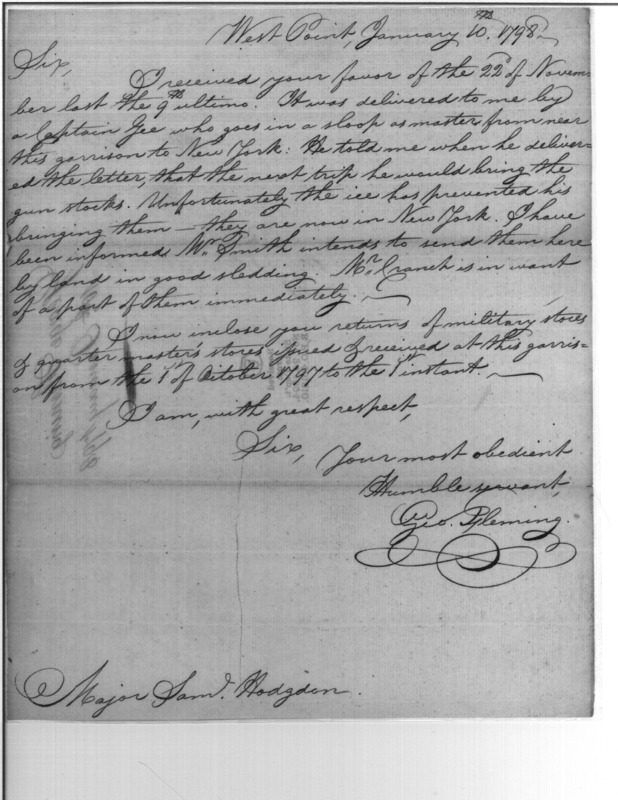 West Point, January 10th. 1798.
Sir,
I received your favor of the 22d of Novem-
ber last the 9th ultimo. It was delivered to me by
a Captain Gee who goes in a sloop as master from near
this garrison to New York: He told me when he deliver-
ed the letter, that the next trip he would bring the
gun stocks. Unfortunately the ice has prevented his
bringing them — they are now in New York. I have
been informed Mr. Smith intends to send them here
by land in good sledding. Mr. Cranch is in want
of a part of them immediately. —
I now inclose you returns of military stores
& quarter master's stores issued & received at this garris-
on from the 1st of October 1797 to the 1st instant. —
I am, with great respect,
Sir, Your most obedient
Humble servant,
Geo. Fleming.
Major Saml. Hodgdon.